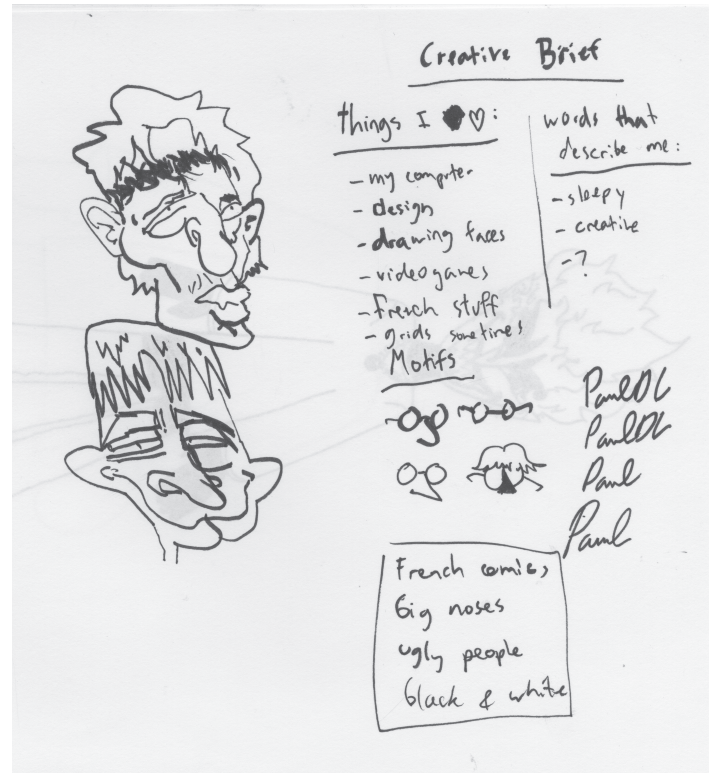 Creative Brief
things I ♥♡:
- my computer
- design
- drawing faces
- videogames
- French stuff
- grids sometimes
words that
describe me:
- sleepy
- creative
- ?
Motifs
Paul
Paul
French comics
big noses
ugly people
black & white